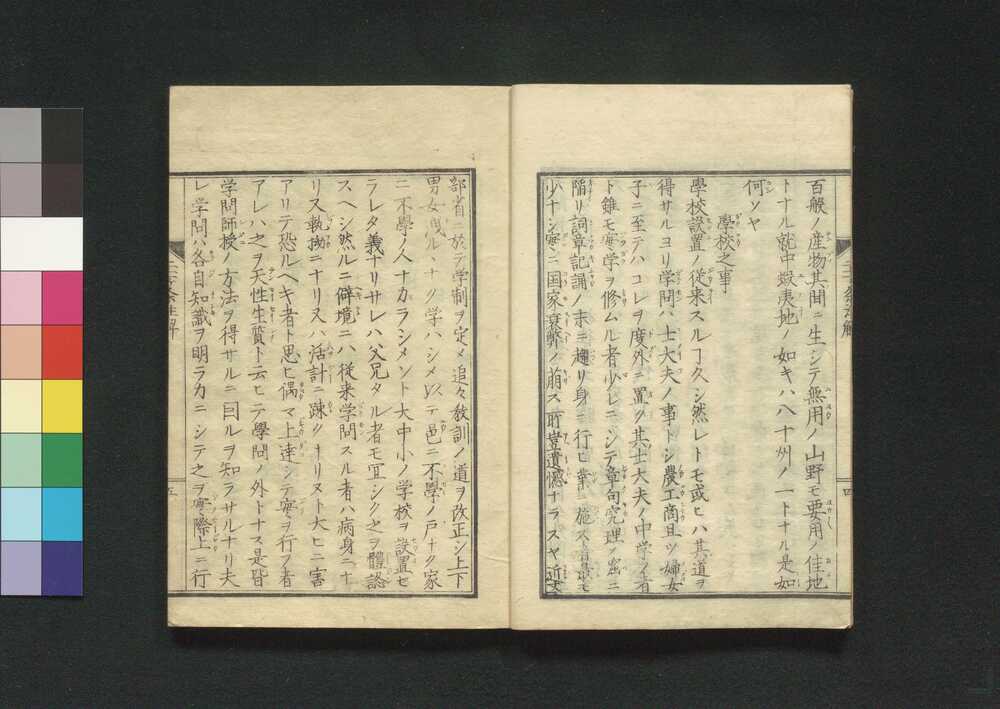 百般ノ産物其間ニ生シテ無用ノ山野モ要用ノ佳地
トナル就中蝦夷地ノ如キハ八十州ノ一トナル是如
何ソヤ
學校之事
學校設置ノ從来スルヿ久シ然レトモ或ヒハ其道ヲ
得サルヨリ学問ハ士大夫ノ事トシ農工商且ツ婦女
子ニ至テハコレヲ度外ニ置ク其士大夫ノ中学フ者
ト雖モ実学ヲ修ムル者少レニシテ章句究理ノ窟ニ
陥リ詞章記誦ノ末ニ趨リ身ニ行ヒ業ニ施ス者最モ
少ナシ実ニ国家衰弊ノ萠ス所豈遺憾ナラスヤ近文
四
部省ニ於テ学制ヲ定メ追々教訓ノ道ヲ改正シ上下
男女洩ルヽナク学ハシメ以テ邑ニ不學ノ戸ナク家
ニ不學ノ人ナカランメント大中小ノ学校ヲ設置セ
ラレタ義ナリサレハ父兄タル者モ宜シク之ヲ體認
スヘシ然ルニ僻境ニハ従来学問スル者ハ病身ニナ
リ又執拗ニナリ又ハ活計ニ疎クナリヌト大ヒニ害
アリテ恐ルヘキ者ト思ヒ偶マ上達シテ実ヲ行フ者
アレハ之ヲ天性生質ト云ヒテ學問ノ外トナス是皆
学問師授ノ方法ヲ得サルニ因ルヲ知ラサルナリ夫
レ学問ハ各自知識ヲ明ラカニシテ之ヲ実際上ニ行
五